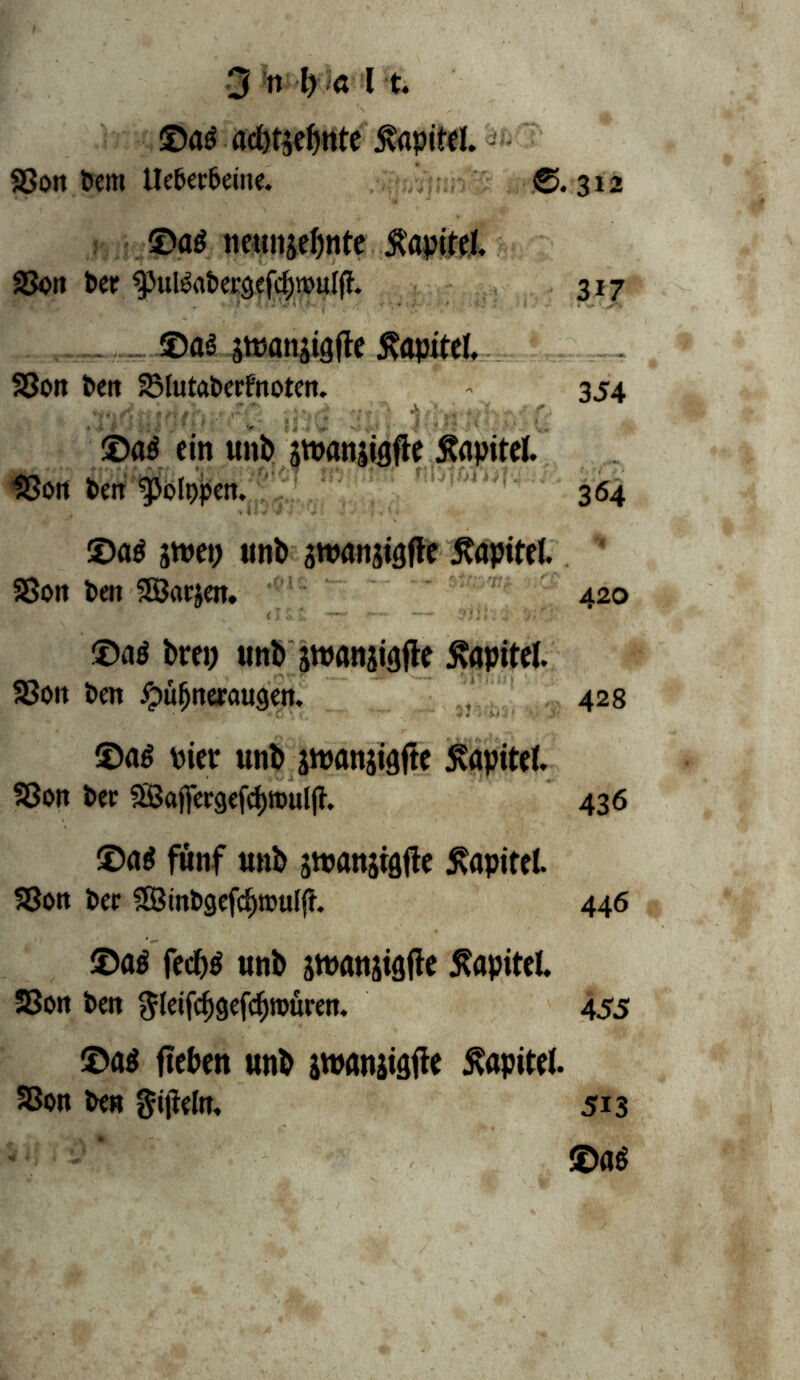 Inhalt.
Das achtzehnte Kapitel.
Von dem Ueberbeine. S. 312
Das neunzehnte Kapitel.
Von der Pulsadergeschwulst. 317
Das zwanzigste Kapitel.
Von den Blutaderknoten. 354
Das ein und zwanzigste Kapitel.
Von den Polypen. 364
Das zwey und zwanzigste Kapitel.
Von den Warzen. 420
Das drey und zwanzigste Kapitel.
Von den Hühneraugen. 428
Das vier und zwanzigste Kapitel.
Von der Wassergeschwulst. 436
Das fünf und zwanzigste Kapitel.
Von der Windgeschwulst. 446
Das sechs und zwanzigste Kapitel.
Von den Fleischgeschwüren. 455
Das sieben und zwanzigste Kapitel.
Von den Fisteln. 513
Das